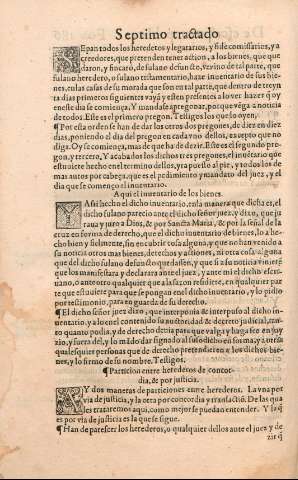 Septimo tractado
SEpan todos los herederos y legatarios, y fideicomissarios, y a
creedores, que pretenden tener action, a los bienes, que que
daron, y fincarõ, de fulano defuncto, vezino de tal parte, que
fulano heredero, o fulano testamentario, haze inuentario de sus bie-
nes, en las casas de su morada que son en tal parte, que dentro de treyn
ta dias primeros siguientes vaya y esten presentes a lo ver hazer q̃ oy
en este dia se comiença, Y mandase apregonar, porque vẽga a noticia
de todos. Este es el primero pregon. Testigos los que lo oyen.
¶ Por esta orden se han de dar los otros dos pregones, de diez en diez
dias, poniendo el dia del pregon en cada vno dellos, excepto que no
diga. Oy se comiença, mas de que ha de dezir. Este es el segundo pre-
gon, y tercero, Y acabados los dichos tres pregones, el inuẽtario que
estuuiere hecho en el termino dellos, va puesto al pie, y todos los de
mas autos por cabeça, que es el pedimiento y mandato del juez, y el
dia que se començo el inuentario.
Aqui el inuentario de los bienes.
YAssi hecho el dicho inuentario, en la manera que dicha es, el
dicho fulano parecio ante el dicho señor juez, y dixo, que ju
raua y juro a Dios, & por Sancta Maria, & por la señal de la
cruz en forma de derecho, que el dicho inuentario de bienes, lo a he-
cho bien y fielmente, sin encubrir cosa alguna, y que no han venido a
su noticia otros mas bienes, derechos y actiones, ni otra cosa alguna
que del dicho fulano defuncto quedassen, y que si a su noticia viniere
que los manifestara y declarara ante el juez, y ante mi el dicho escri-
uano, o ante otro qualquier que a la sazon residiere, en qualquier par
te que estuuiere para que se pongan en el dicho inuentario, y lo pidio
por testimonio, para en guarda de su derecho.
¶ El dicho señor juez dixo, que interponia & interpuso al dicho in-
uentario, y a lo en el contenido su authoridad & decreto judicial, tan-
to quanto podia, y de derecho deuia para que valga y haga fee en juy
zio, y fuera del, y lo mãdo dar signado al susodicho en forma, y a otras
qualesquier personas que de derecho pretendieren a los dichos bie-
nes, y lo firmo de su nombre. Testigos.
¶ Particion entre herederos de concor-
dia, & por justicia.
AY dos maneras de particiones entre herederos. La vna por
via de justicia, y la otra por concordia y transactiõ. De las qua
les trataremos aqui, como mejor se puedan entender. Y la q̃
es por via de justicia es la que se sigue.
¶ Han de parescer los herederos, o qualquier dellos ante el juez y de
zir q̃